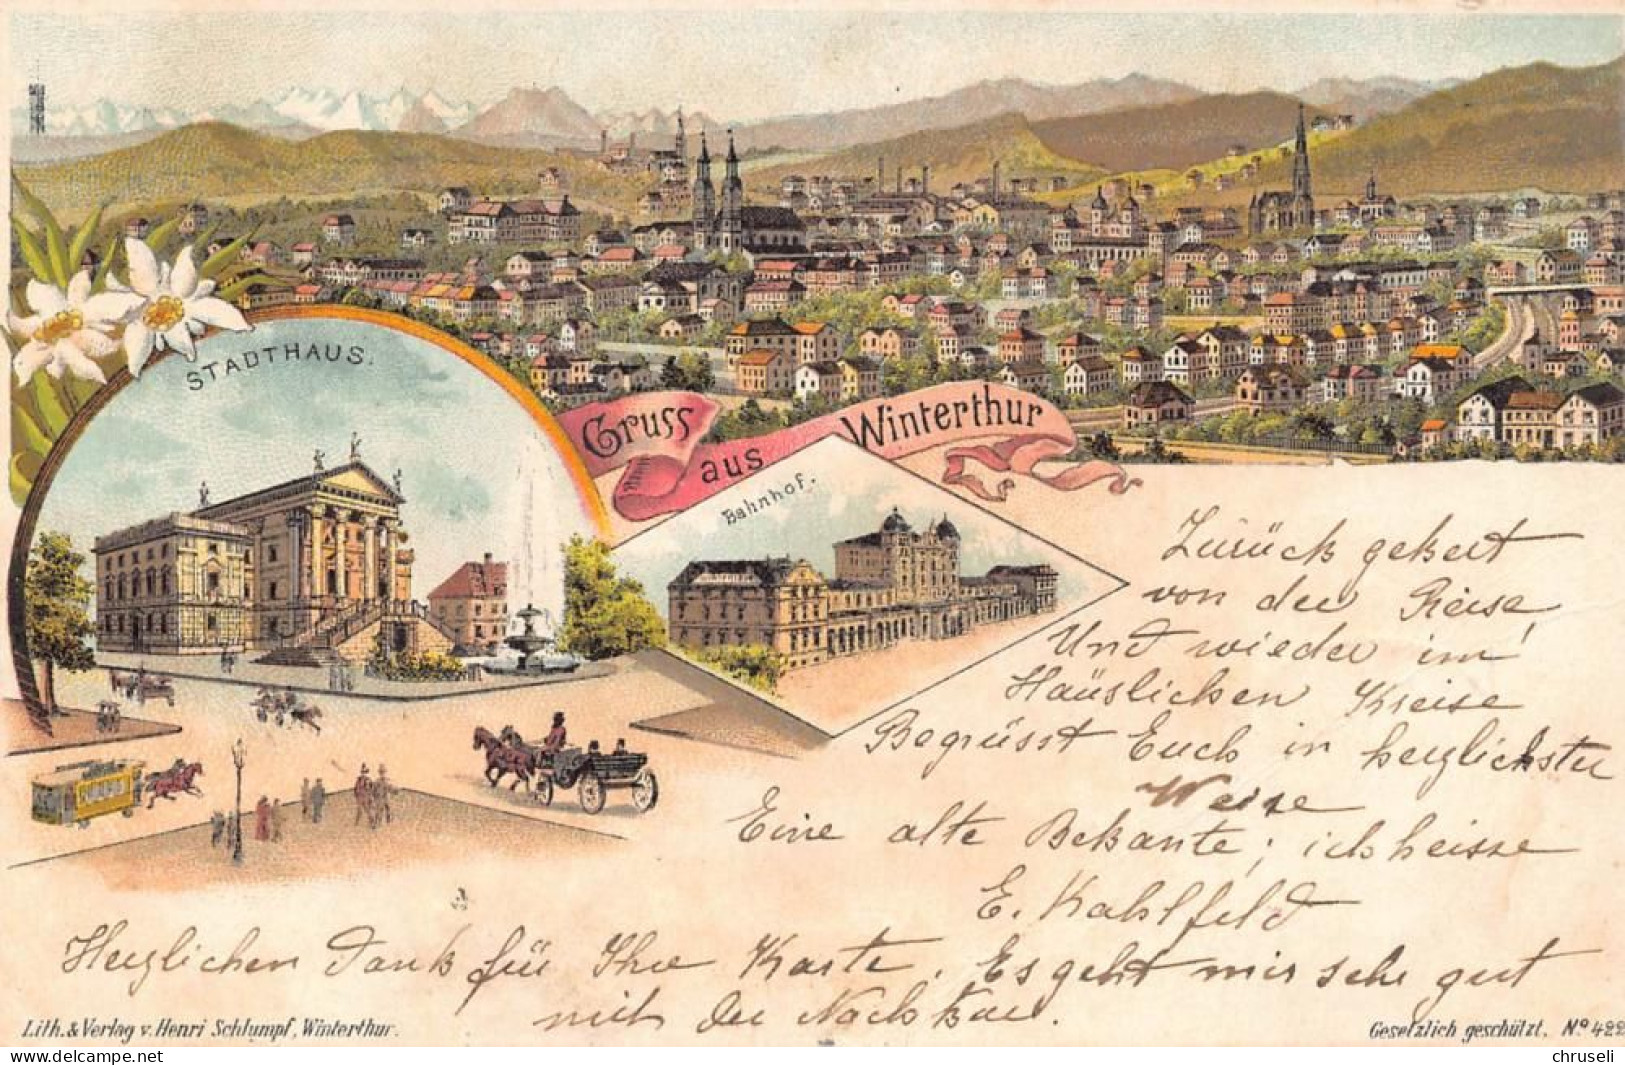 STADTHAUS.
Gruss
aus
Winterthur
Bahnhof.
Zurück gekert
von der Reise,
Und wieder im
Häuslichen Kreise
Begrüsst Euch in herzlichster
Weise
Eine alte Bekante; ich heisse
E. Kahlfeld
Herzlichen Dank für Ihre Karte. Es geht mir sehr gut
mit der Nachkur.
Lith. & Verlag v. Henri Schlumpf, Winterthur.
Gesetzlich geschützt. No 422
chruseli